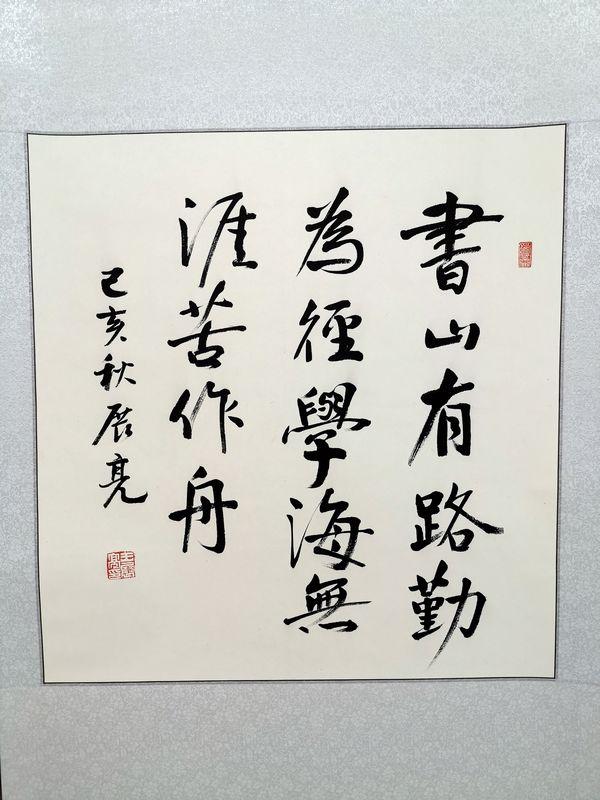 書山有路勤
為徑學海無
涯苦作舟
己亥秋展亮